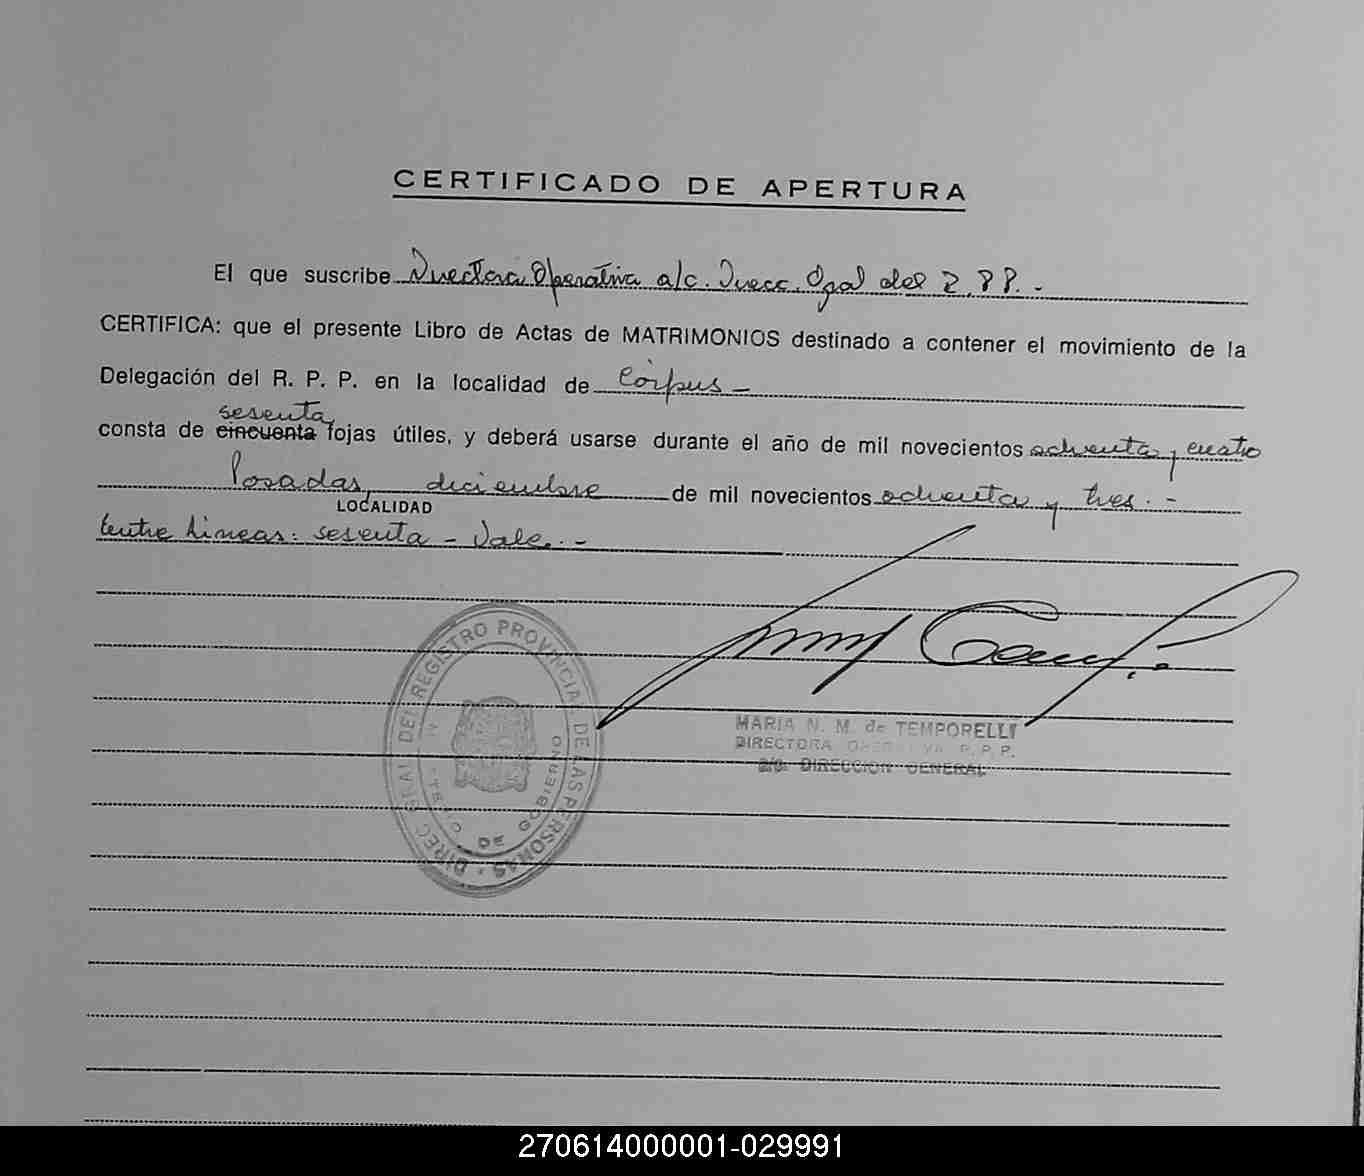 CERTIFICADO DE APERTURA
El que suscribe Directora Operativa a/c. Direcc. Gral del R.P.P. -
CERTIFICA: que el presente Libro de Actas de MATRIMONIOS destinado a contener el movimiento de la
Delegación del R. P. P. en la localidad de Corpus -
sesenta
consta de cincuenta fojas útiles, y deberá usarse durante el año de mil novecientos ochenta y cuatro
Posadas, diciembre de mil novecientos ochenta y tres. -
LOCALIDAD
Entre Lineas: sesenta - Vale. -
DIREC. GRAL. DEL REGISTRO PROVINCIAL DE LAS PERSONAS
DE GOBIERNO
MARIA N. M. de TEMPORELLI
DIRECTORA OPERATIVA R. P. P.
a/c. DIRECCION GENERAL
270614000001-029991